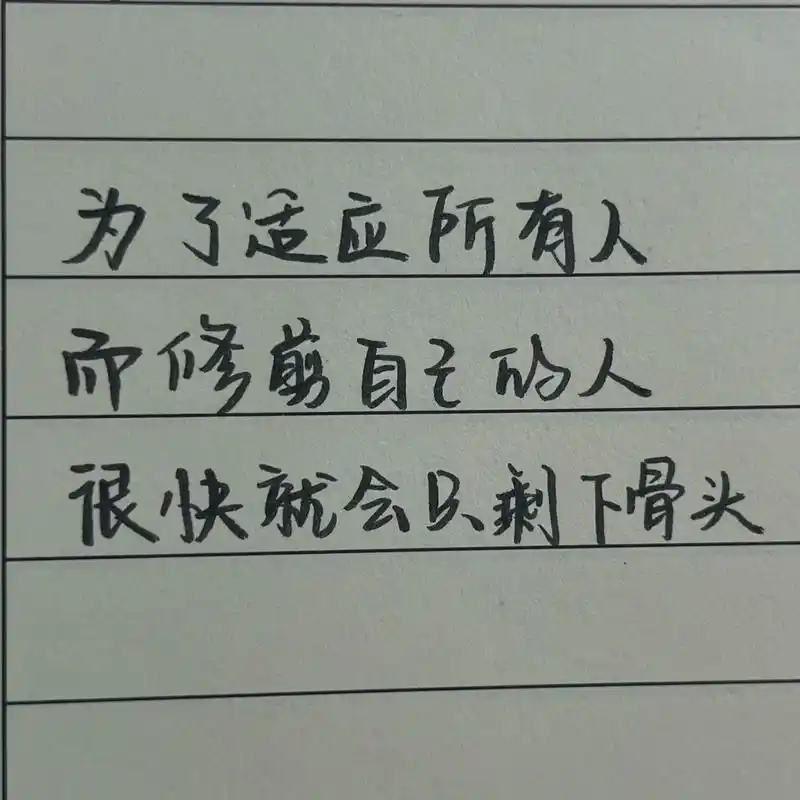 为了适应所有人
而修剪自己的人
很快就会只剩下骨头